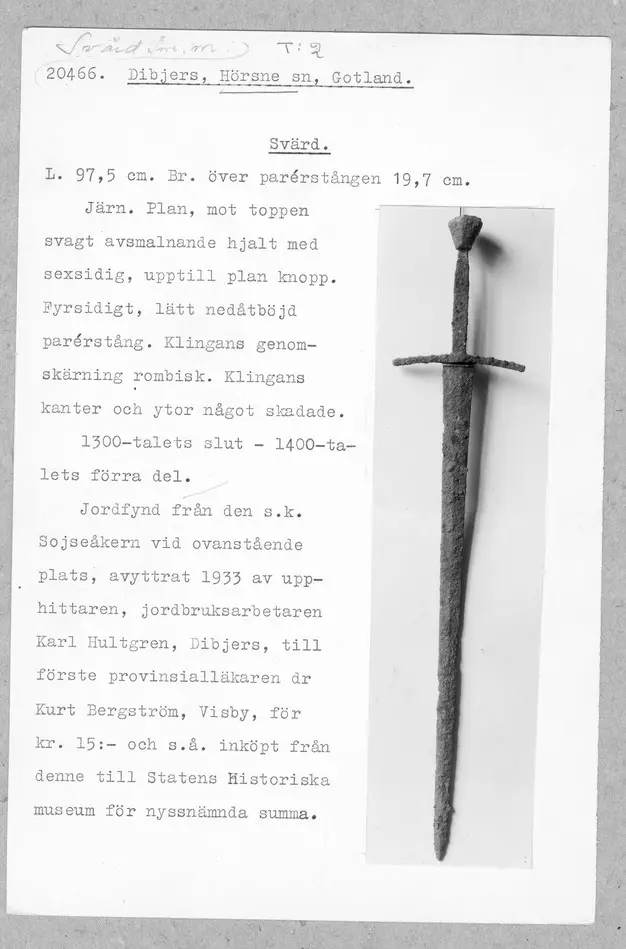 Svärd T: 2
20466. Dibjers, Hörsne sn, Gotland.
Svärd.
L. 97,5 cm. Br. över parérstången 19,7 cm.
Järn. Plan, mot toppen
svagt avsmalnande hjalt med
sexsidig, upptill plan knopp.
Fyrsidigt, lätt nedåtböjd
parérstång. Klingans genom-
skärning rombisk. Klingans
kanter och ytor något skadade.
1300-talets slut - 1400-ta-
lets förra del.
Jordfynd från den s.k.
Sojseåkern vid ovanstående
plats, avyttrat 1933 av upp-
hittaren, jordbruksarbetaren
Karl Hultgren, Dibjers, till
förste provinsialläkaren dr
Kurt Bergström, Visby, för
kr. 15:- och s.å. inköpt från
denne till Statens Historiska
museum för nyssnämnda summa.